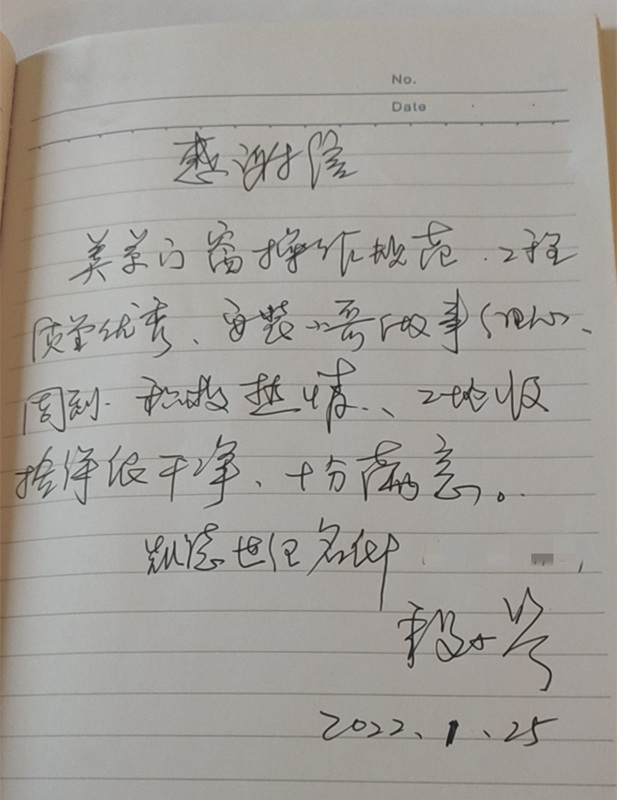 No.
Date
感谢信
美 门窗操作规范、工程
质量优秀、安装小哥做事细心、
周到、积极热情、工地收
拾得很干净、十分满意。
凯德世纪名邸
2022.1.25